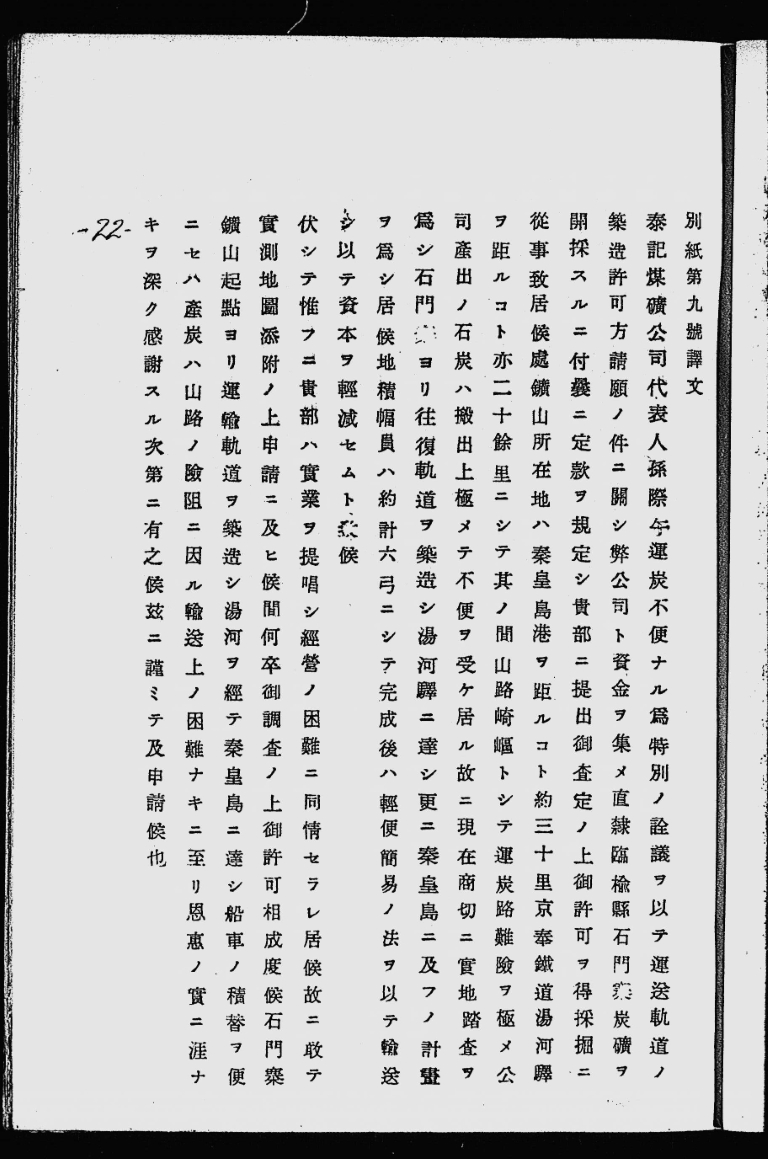 別紙第九號譯文
泰記煤礦公司代表人孫際午運炭不便ナル爲特別ノ詮議ヲ以テ運送軌道ノ
築造許可方請願ノ件ニ關シ弊公司ト資金ヲ集メ直隷臨楡縣石門寨炭礦ヲ
開採スルニ付曩ニ定款ヲ規定シ貴部ニ提出御査定ノ上御許可ヲ得採掘ニ
從事致居候處鑛山所在地ハ秦皇島港ヲ距ルコト約三十里京奉鐵道湯河驛
ヲ距ルコト亦二十餘里ニシテ其ノ間山路崎嶇トシテ運炭路難險ヲ極メ公
司產出ノ石炭ハ搬出上極メテ不便ヲ受ケ居ル故ニ現在商切ニ實地踏査ヲ
爲シ石門ヨリ往復軌道ヲ築造シ湯河驛ニ達シ更ニ秦皇島ニ及フノ計畫
ヲ爲シ居候地積幅員ハ約計六弓ニシテ完成後ハ輕便簡易ノ法ヲ以テ輸送
シ以テ資本ヲ輕減セムト候
伏シテ惟フニ貴部ハ實業ヲ提唱シ經營ノ困難ニ同情セラレ居候故ニ敢テ
實測地圖添附ノ上申請ニ及ヒ候間何卒御調査ノ上御許可相成度候石門寨
鑛山起點ヨリ運輸軌道ヲ築造シ湯河ヲ經テ秦皇島ニ達シ船車ノ積替ヲ便
ニセハ產炭ハ山路ノ險阻ニ因ル輸送上ノ困難ナキニ至リ恩惠ノ實ニ涯ナ
キヲ深ク感謝スル次第ニ有之候玆ニ謹ミテ及申請候也
-22-